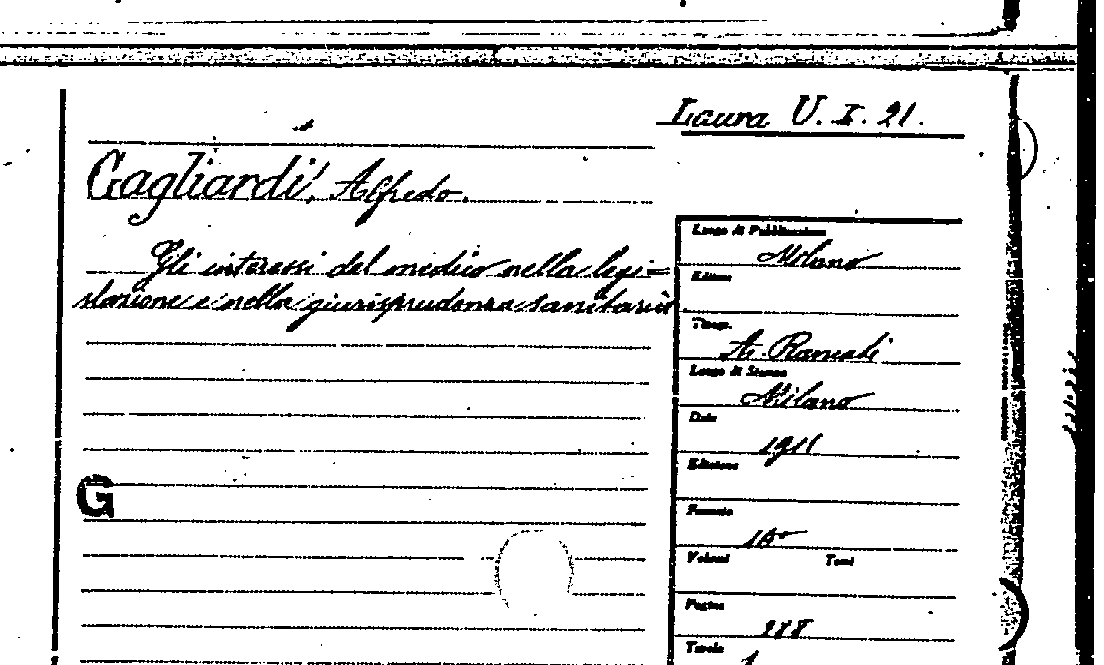 Laura U. I. 21.
Gagliardi, Alfredo.
Gli interessi del medico nella legi=
slazione e nella giurisprudenza sanitaria.
G
Luogo di Pubblicazione
Milano
Editore
Tipogr.
A. Rancati
Luogo di Stampa
Milano
Data
1911
Edizione
Formato
16°
Volumi Tomi
Pagine
Tavole